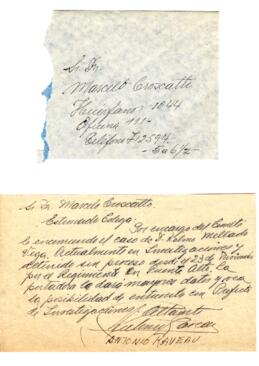 Sr. Dr.
Marcelo Croscatto
Huérfanos 1044
Oficina 111-
Teléfono 712594
- 5 a 6 1/2 -
Sr. Dr. Marcelo Croscatto.
Estimado Colega:
Por encargo del Comité
le encomiendo el caso de D. Mellado
Vega. Actualmente en Investigaciones y
detenido sin proceso desde el 23 de Noviembre
por el Regimiento en Puente Alto, la
portadora le dará mayores datos y vea
la posibilidad de entrevista con Prefecto
de Investigaciones.
ANTONIO RAVEAU